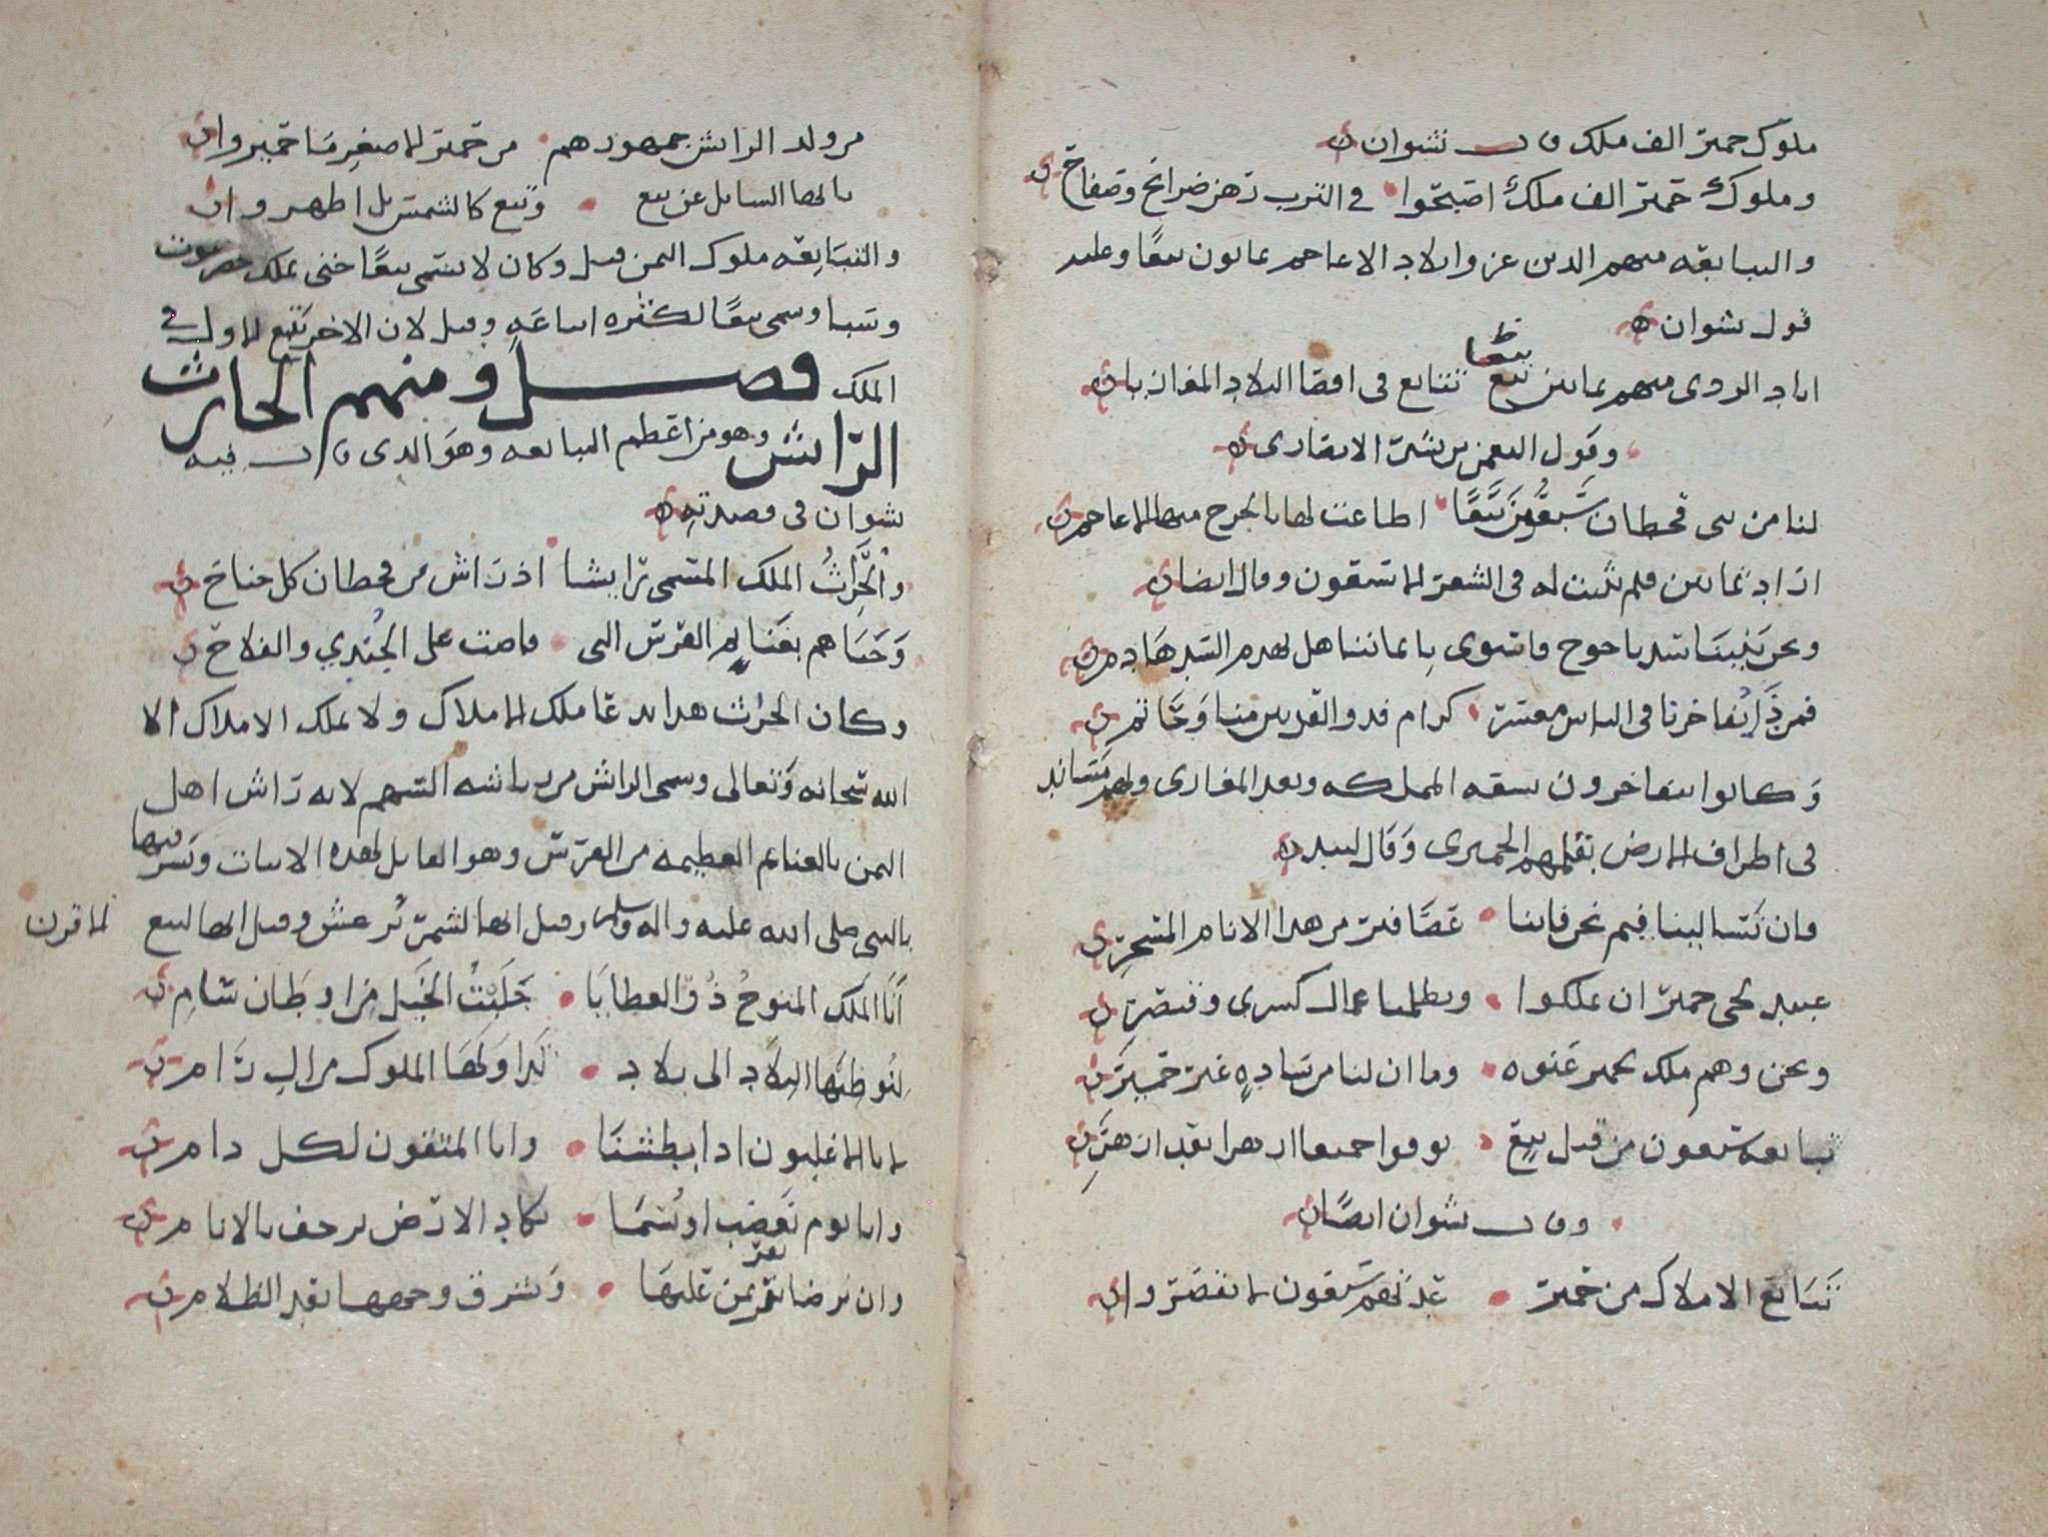 ملوك حمير الف ملك قال نشوان
وملوك حمير الف ملك اصبحوا في الترب رهن ضرائح وصفاح
والتبابعه منهم الدين عزوا بلاد الاعاجم ثمانون تبعا وعليه
قول نشوان
تتابع في اقصا البلاد المغازيا
وقول النعمن بن بشير الانصاري
لنا من بني قحطان سبعون تبعا اطاعت لها بالخرج منها الاعاجم
اراد ثمانين فلم يثبت له في الشعر الا سبعون وقال ايضا
ونحن بنينا سد ياجوج فاستوى بايماننا هل يهدم السد هادم
فمن ذا يفاخرنا في الناس معشر كرام فدو القرنين منا وحاتم
وكانوا يتفاخرون بسعه المملكه وبعد المغازي ولهم مساند
في اطراف الارض بقلمهم الحميري وقال لبيد
فان تسالينا فيم نحن فاننا عصافير من هدا الانام المسحر
عبيد لحي حمير ان تملكوا ويظلمنا عمال كسرى وقيصر
ونحن وهم ملك لحمير عنوه وما ان لنا من ساده غير حمير
تبابعه سبعون من قبل تبع توفوا جميعا ازهرا بعد ازهر
وقال نشوان ايضا
تتابع الاملاك من حمير عدتهم سبعون لا تقصروا
من ولد الرائش جمهورهم من حمير الاصغر سا حمير وا
يا ايها السائل عن تبع وتبع كالشمس بل اظهر وا
والتبابعه ملوك اليمن قيل وكان لا يسمى تبعا حتى يملك حضرموت
وسبا وسمي تبعا لكثره اتباعه وقيل لان الاخر يتبع الاول في
الملك فصل ومنهم الحارث
الرائش وهو من اعظم التبابعه وهو الدي قال فيه
نشوان في قصيدته
والحرث الملك المسمى رايشا اذ راش من قحطان كل جناح
وحباهم بغنائم الفرس التي فاضت على الجندي والفلاح
وكان الحرث هدا يدعا ملك الاملاك ولا يملك الاملاك الا
الله سبحانه وتعالى وسمي الرائش من رياشه السهم لانه راش اهل
اليمن بالغنائم العظيمه من الفرس وهو القايل لهده الابيات وبشر فيها
بالنبي صلى الله عليه واله وسلم وقيل انها لشمر يرعش وقيل انها لتبع الاقرن
انا الملك المنوح ذو العطايا جلبت الخيل من اوطان شام
لنوطئها البلاد الى بلاد
لانا الاغلبون ادا بطشنا وانا المتقون لكل دام
وانا يوم نغضب او نسما تكاد الارض ترجف بالانام
وان نرضا تقر بمن عليها وتشرق وجهها بعد الظلام